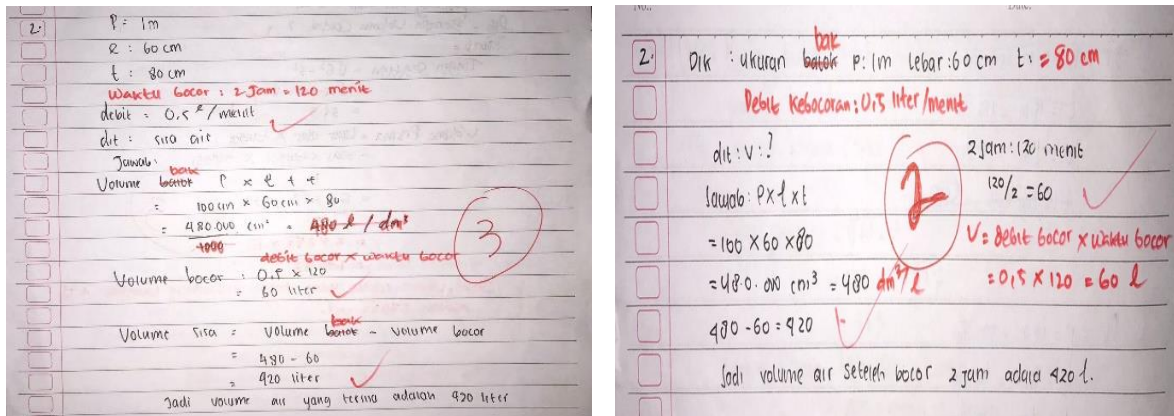 2.
P = 1m
l : 60 cm
t : 80 cm
Waktu bocor : 2 Jam = 120 menit
debit = 0,5 l/menit
dit : sisa air
Jawab :
bak
Volume balok P x l x t
= 100 cm x 60 cm x 80
= 480.000 cm³ = 480 l / dm³
1000
debit bocor x waktu bocor
3
Volume bocor : 0,5 x 120
= 60 liter
bak
Volume sisa = Volume balok - volume bocor
= 480 - 60
= 420 liter
Jadi volume air yang adalah 420 liter
No.:
Date:
bak
2. Dik : ukuran balok P: 1m lebar : 60 cm t: = 80 cm
Debit Kebocoran : 0,5 liter/menit
dit : V : ?
2 jam : 120 menit
Jawab : P x l x t
120/2 = 60
2
= 100 x 60 x 80
V = debit bocor x waktu bocor
= 480.000 cm³ = 480 dm³/l
= 0,5 x 120 = 60 l
480 - 60 = 420
Jadi volume air setelah bocor 2 jam adala 420 l.